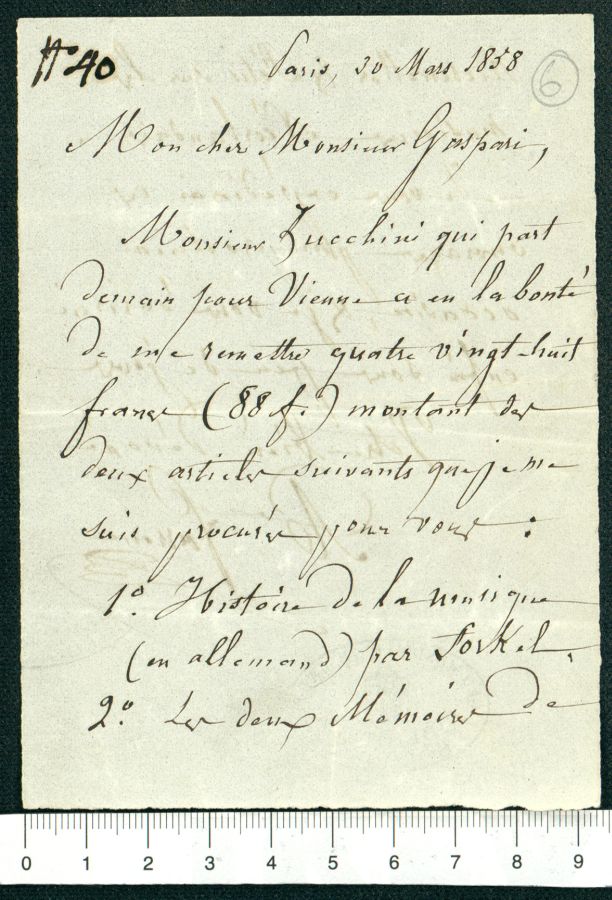 N° 40
Paris, 30 Mars 1858
6
Mon cher Monsieur Gaspari,
Monsieur Zucchini qui part
demain pour Vienne a eu la bonté
de me remettre quatre vingt-huit
francs (88 f.) montant des
deux articles suivants que je me
suis procurés pour vous :
1°. Histoire de la musique
(en allemand) par Forkel.
2°. Les deux Mémoires de
0 1 2 3 4 5 6 7 8 9